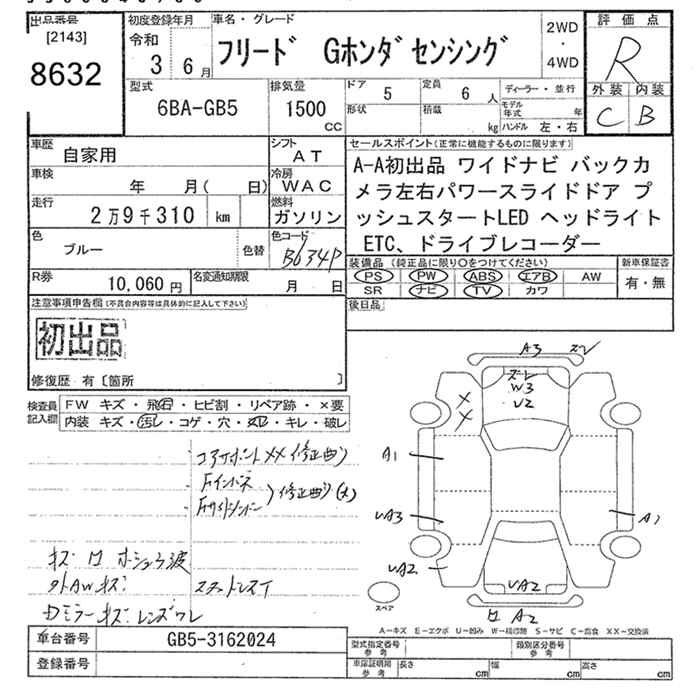 出品番号
[2143]
8632
初度登録年月
令和
3 6月
車名・グレード
フリード Gホンダセンシング
2WD
・
4WD
評価点
R
外装 内装
C B
型式
6BA-GB5
排気量
1500
CC
ドア
5
定員
6 人
形状
積載
kg
ディーラー・並行
モデル年式 年
ハンドル 左・右
車歴
自家用
シフト
AT
車検
年 月( 日)
冷房
WAC
走行
2万9千310 km
燃料
ガソリン
色
ブルー
色替
色コード
B634P
R券
10,060円
名変通知期限
月 日
セールスポイント(正常に機能するものに限ります)
A-A初出品 ワイドナビ バックカ
メラ左右パワースライドドア プ
ッシュスタートLED ヘッドライト
ETC、ドライブレコーダー
装備品 (純正品に限り○をつけてください)
PS PW ABS エアB AW
SR ナビ TV カワ
新車保証書
有・無
後日品
注意事項申告欄(不具合内容等は具体的に記入して下さい)
初出品
修復歴 有〔箇所 〕
検査員
記入欄
FW キズ・飛石・ヒビ割・リペア跡・×要
内装 キズ・汚レ・コゲ・穴・・キレ・破レ
コアサポートXX 修正曲り
Fインパネ
Fサイドメンバー
修正曲り(大)
キズ ロ 波
外AWキズ
スタットレスT
ミラーキズ レンズワレ
A3
ズレ
W3
U2
X
X
A1
UA3
UA2
A1
UA2
ロ A2
スペア
A−キズ E−エクボ U−凹み W−補修跡 S−サビ C−腐食 XX−交換済
車台番号
GB5-3162024
登録番号
型式指定番号
参考
類別区分番号
参考
車庫証明用
参考
長さ cm
幅 cm
高さ cm